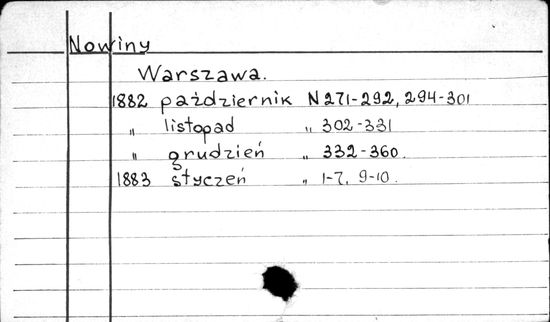 Nowiny
Warszawa.
1882 październik N 271-292, 294-301
„ listopad „ 302-331
„ grudzień „ 332-360.
1883 styczeń „ 1-7, 9-10.